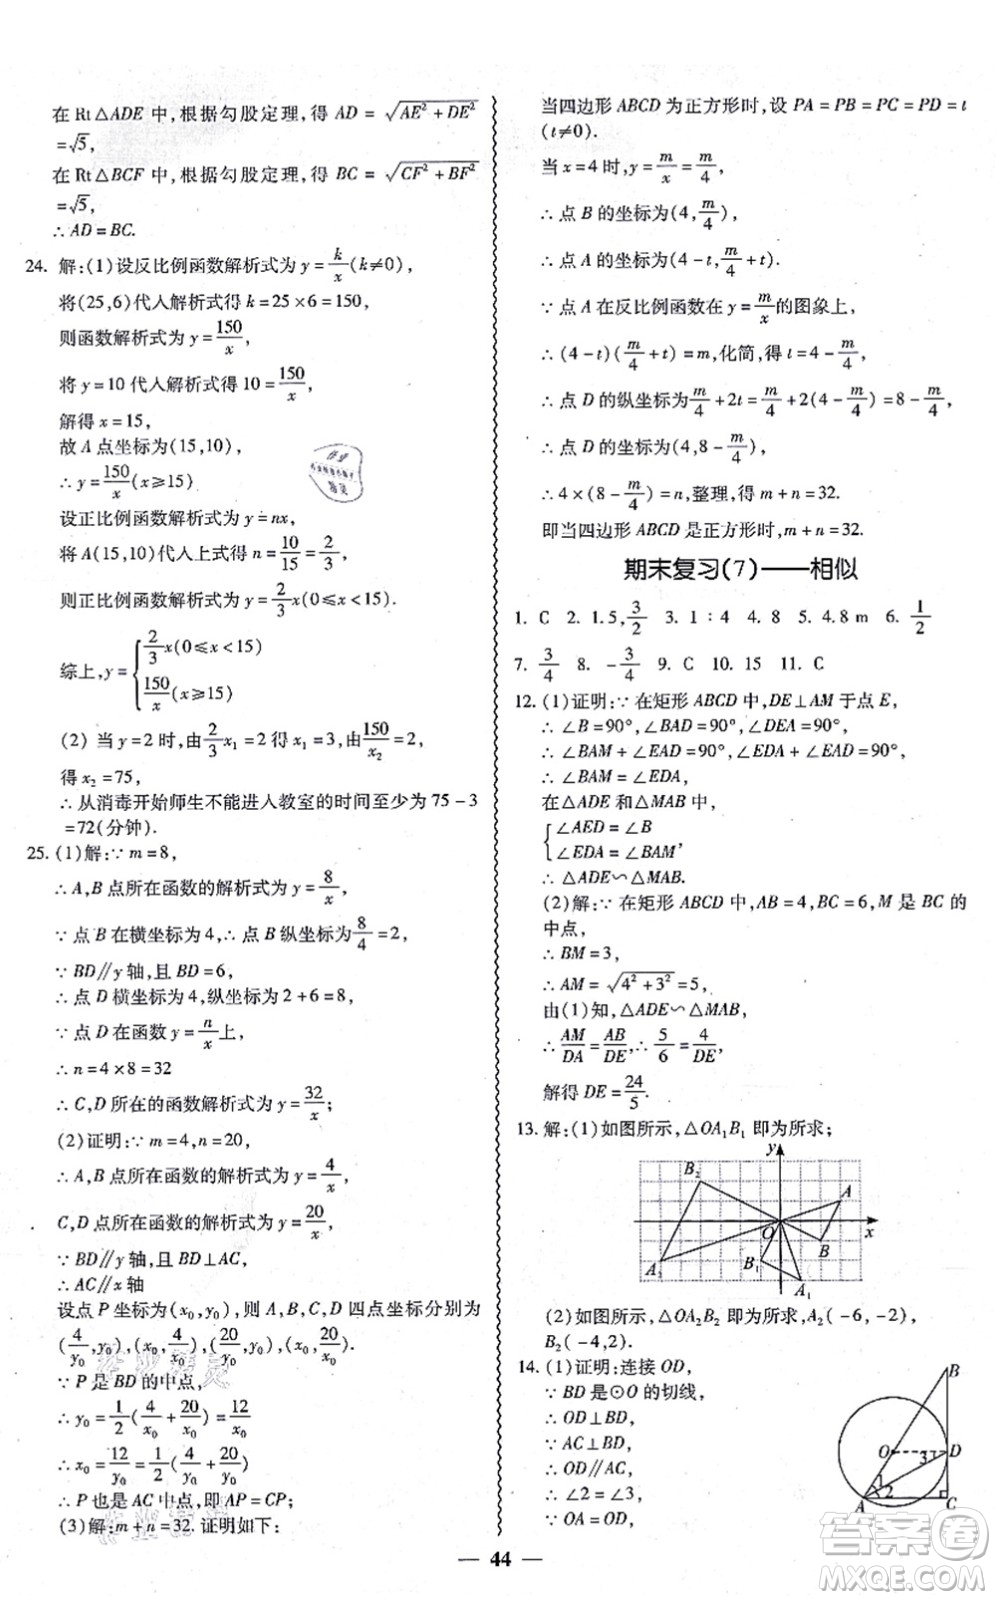 在 Rt△ADE 中,根据勾股定理,得 AD = √(AE²+DE²)
=√5,
在 Rt△BCF 中,根据勾股定理,得 BC = √(CF²+BF²)
=√5,
∴ AD = BC.
24. 解:(1)设反比例函数解析式为 y = k/x (k≠0),
将(25,6)代人解析式得 k = 25×6 = 150,
则函数解析式为 y = 150/x,
将 y = 10 代人解析式得 10 = 150/x,
解得 x = 15,
故 A 点坐标为(15,10),
∴ y = 150/x (x≥15)
设正比例函数解析式为 y = nx,
将 A(15,10)代人上式得 n = 10/15 = 2/3,
则正比例函数解析式为 y = 2/3 x(0≤x<15).
综上,y = { 2/3 x(0≤x<15)
150/x (x≥15)
(2) 当 y = 2 时,由 2/3 x₁ = 2 得 x₁ = 3,由 150/x₂ = 2,
得 x₂ = 75,
∴ 从消毒开始师生不能进人教室的时间至少为 75 - 3
= 72(分钟).
25. (1)解:∵ m = 8,
∴ A,B 点所在函数的解析式为 y = 8/x,
∵ 点 B 在横坐标为 4,∴ 点 B 纵坐标为 8/4 = 2,
∵ BD∥y 轴,且 BD = 6,
∴ 点 D 横坐标为 4,纵坐标为 2+6 = 8,
∵ 点 D 在函数 y = n/x 上,
∴ n = 4×8 = 32
∴ C,D 所在的函数解析式为 y = 32/x;
(2)证明:∵ m = 4,n = 20,
∴ A,B 点所在函数的解析式为 y = 4/x,
C,D 点所在函数的解析式为 y = 20/x,
∵ BD∥y 轴,且 BD⊥AC,
∴ AC∥x 轴
设点 P 坐标为(x₀,y₀),则 A,B,C,D 四点坐标分别为
(4/y₀,y₀),(x₀,4/x₀),(20/y₀,y₀),(x₀,20/x₀).
∵ P 是 BD 的中点,
∴ y₀ = 1/2 (4/x₀ + 20/x₀) = 12/x₀
∴ x₀ = 12/y₀ = 1/2 (4/y₀ + 20/y₀)
∴ P 也是 AC 中点,即 AP = CP;
(3)解:m+n = 32. 证明如下:
当四边形 ABCD 为正方形时,设 PA = PB = PC = PD = t
(t≠0).
当 x = 4 时,y = m/x = m/4,
∴ 点 B 的坐标为(4,m/4),
∴ 点 A 的坐标为(4-t,m/4+t).
∵ 点 A 在反比例函数在 y = m/x 的图象上,
∴ (4-t)(m/4+t) = m,化简,得 t = 4 - m/4,
∴ 点 D 的纵坐标为 m/4 + 2t = m/4 + 2(4 - m/4) = 8 - m/4,
∴ 点 D 的坐标为(4,8 - m/4),
∴ 4×(8 - m/4) = n,整理,得 m+n = 32.
即当四边形 ABCD 是正方形时,m+n = 32.
期末复习(7)——相似
1. C 2. 1.5,3/2 3. 1∶4 4. 8 5. 4.8 m 6. 1/2
7. 3/4 8. -3/4 9. C 10. 15 11. C
12. (1)证明:∵ 在矩形 ABCD 中,DE⊥AM 于点 E,
∴ ∠B = 90°,∠BAD = 90°,∠DEA = 90°,
∴ ∠BAM+∠EAD = 90°,∠EDA+∠EAD = 90°,
∴ ∠BAM = ∠EDA,
在△ADE 和△MAB 中,
{ ∠AED = ∠B
∠EDA = ∠BAM',
∴ △ADE∽△MAB.
(2)解:∵ 在矩形 ABCD 中,AB = 4,BC = 6,M 是 BC 的
中点,
∴ BM = 3,
∴ AM = √(4²+3²) = 5,
由(1)知,△ADE∽△MAB,
∴ AM/DA = AB/DE,∴ 5/6 = 4/DE,
解得 DE = 24/5.
13. 解:(1)如图所示,△OA₁B₁ 即为所求;
y
B₂
A
O
x
B
A₂
B₁
A₁
(2)如图所示,△OA₂B₂ 即为所求,A₂(-6,-2)
B₂(-4,2).
14. (1)证明:连接 OD,
∵ BD 是⊙O 的切线,
∴ OD⊥BD,
∵ AC⊥BD,
∴ OD∥AC,
∴ ∠2 = ∠3,
∵ OA = OD,
B
O
3
D
1
2
A
C
44
答案卷
MXQE.COM